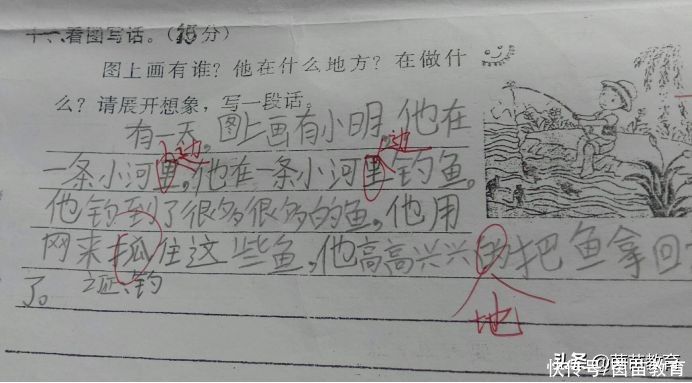 十一、看图写话。(15分)
图上画有谁?他在什么地方?在做什
么?请展开想象,写一段话。
有一天,图上画有小明,他在
边 边
一条小河里,他在一条小河里钓鱼。
他钓到了很多很多的鱼,他用
网来抓住这些鱼,他高高兴兴的把鱼拿回
了。
钓
地
头条@茵苗教育
快传号/茵苗教育